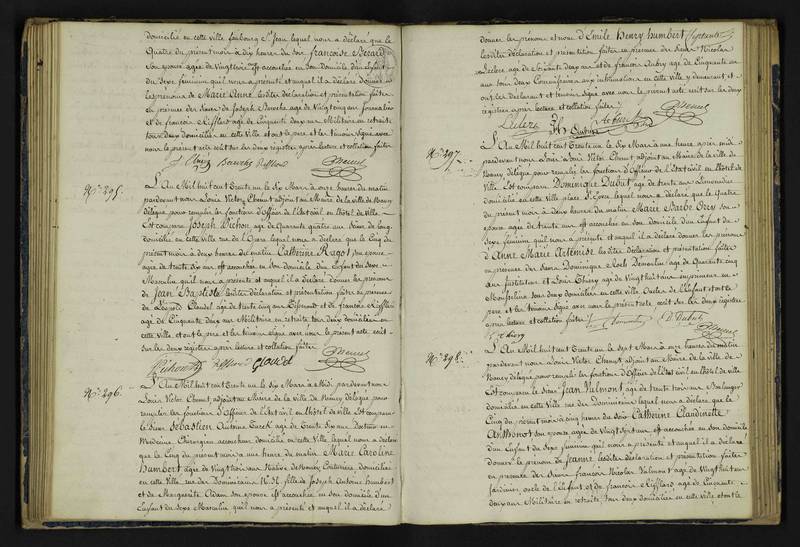 domicilié en cette ville faubourg St Jean lequel nous a déclaré que le
Quatre du présent mois à dix heures du soir françoise Berard
Son épouse agée de Vingt est accouchée en son domicile d'un Enfant
du Sexe féminin qu'il nous a présenté et auquel il a déclaré donner
les prénoms de Marie Anne. lesdites déclaration et présentation faites
en présence des Sieurs Joseph agé de Vingt cinq ans Journalier
et de françois Rifflard agé de Cinquante deux ans Militaire en retraite
tous deux domiciliés en cette Ville et ont le père et les témoins signé avec
nous le présent acte écrit sur les deux registres après lecture et collation faites
No. 295.
L'An Mil huit cent Trente un le Six Mars à onze heures du matin
pardevant nous Louis Victor Chenut adjoint au Maire de la Ville de Nancy
délégué pour remplir les fonctions d'Officier de l'Etat civil en l'hôtel de Ville
Est comparu Joseph Pichon agé de Quarante quatre ans Scieur de long
domicilié en cette Ville rue de l'Opera lequel nous a déclaré que le Cinq du
présent mois à deux heures du matin Catherine Ragot son épouse
agée de trente Six ans est accouchée en son domicile d'un Enfant du Sexe
Masculin qu'il nous a présenté et auquel il a déclaré donner les prénoms
de Jean Baptiste lesdites déclaration et présentation faites en présence
de Léopold Claudel agé de trente cinq ans et de françois Rifflard
agé de Cinquante deux ans Militaire en retraite tous deux domiciliés en
cette Ville et ont le père et les témoins signé avec nous le présent acte écrit
sur les deux registres après lecture et collation faites
No. 296.
L'An Mil huit cent Trente un le Six Mars à Midi pardevant nous
Louis Victor Chenut adjoint au Maire de la Ville de Nancy délégué pour
remplir les fonctions d'Officier de l'Etat civil en l'hôtel de Ville Est comparu
le Sieur Sébastien Antoine Turck agé de Trente Six ans Docteur en
Médecine Chirurgien accoucheur domicilié en cette Ville lequel nous a déclaré
que le Cinq du présent mois à une heure du matin Marie Caroline
Humbert agée de Vingt huit ans Native de Nancy Couturière domiciliée
en cette Ville rue des Dominicains fille de Joseph Antoine Humbert
et de Marguerite Adam son épouse est accouchée en son domicile d'un
Enfant du Sexe Masculin qu'il nous a présenté et auquel il a déclaré
donner les prénoms et nom d'Emile Henry Humbert
lesdites déclaration et présentation faites en présence des Sieurs Nicolas
Leclerc agé de Soixante deux ans et de françois Aubry agé de Cinquante un
ans tous deux en cette Ville y demeurant et
ont les déclarant et témoins signé avec nous le présent acte écrit sur les deux
registres après lecture et collation faites
No. 297.
L'An Mil huit cent Trente un le Six Mars à une heure après midi
pardevant nous Louis Victor Chenut adjoint au Maire de la Ville de
Nancy délégué pour remplir les fonctions d'Officier de l'Etat civil en l'hôtel de
Ville Est comparu Dominique Dubut agé de trente ans Limonadier
domicilié en cette Ville place St Epvre lequel nous a déclaré que le Quatre
du présent mois à deux heures du matin Marie Barbe Gris son
épouse agée de trente ans est accouchée en son domicile d'un Enfant du
Sexe féminin qu'il nous a présenté et auquel il a déclaré donner les prénoms
d'Anne Marie Artémise lesdites déclaration et présentation faites
en présence des Sieurs Dominique agé de Quarante cinq
ans Instituteur et Louis Thiery agé de Vingt huit ans imprimeur en
tous deux domiciliés en cette Ville Oncles de l'Enfant et ont le
père et les témoins signé avec nous le présent acte écrit sur les deux registres
après lecture et collation faites
No. 298.
L'An Mil huit cent Trente un le Sept Mars à onze heures du matin
pardevant nous Louis Victor Chenut adjoint au Maire de la Ville de
Nancy délégué pour remplir les fonctions d'Officier de l'Etat civil en l'hôtel de Ville
Est comparu le Sieur Jean Valmont agé de trente trois ans Boulanger
domicilié en cette Ville rue des Dominicains lequel nous a déclaré que le
Cinq du présent mois à cinq heures du soir Catherine Claudinette
Anthonot son épouse agée de Vingt Sept ans est accouchée en son domicile
d'un Enfant du Sexe féminin qu'il nous a présenté et auquel il a déclaré
donner le prénom de Jeanne lesdites déclaration et présentation faites
en présence des Sieurs françois Nicolas Valmont agé de Vingt huit ans
Jardinier, oncle de l'Enfant et de françois Rifflard agé de Cinquante
deux ans Militaire en retraite tous deux domiciliés en cette Ville et ont le